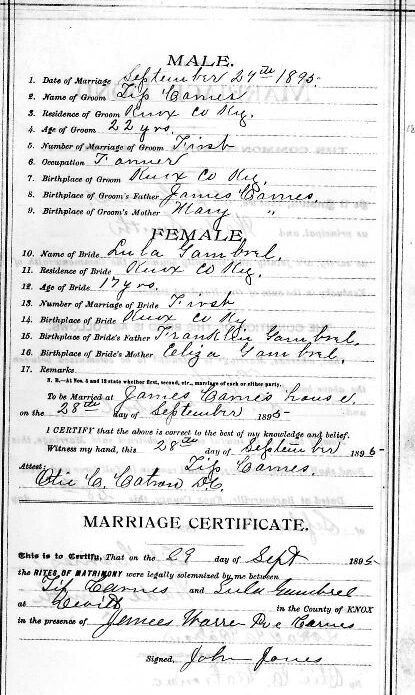 MALE.
1. Date of Marriage September 27th 1895-
2. Name of Groom Tip Carnes
3. Residence of Groom Knox Co Ky.
4. Age of Groom 22 yrs.
5. Number of Marriage of Groom First
6. Occupation Farmer
7. Birthplace of Groom Knox Co Ky.
8. Birthplace of Groom's Father James Carnes.
9. Birthplace of Groom's Mother Mary "
FEMALE,
10. Name of Bride Lula Gambrel,
11. Residence of Bride Knox Co Ky,
12. Age of Bride 17 yrs.
13. Number of Marriage of Bride First
14. Birthplace of Bride Knox Co Ky
15. Birthplace of Bride's Father Franklin Gambrel,
16. Birthplace of Bride's Mother Eliza Gambrel.
17. Remarks
N. B.—At Nos. 5 and 13 state whether first, second, etc., marriage of each or either party.
To be Married at James Carnes house
on the 28th day of September 1895-
I CERTIFY that the above is correct to the best of my knowledge and belief.
Witness my hand, this 28th day of September 1895-
Tip Carnes.
Attest:
C. Catron DC.
MARRIAGE CERTIFICATE.
This is to Certify, That on the 29 day of Sept 1895-
the RITES OF MATRIMONY were legally solemnized by me between
Tip Carnes and Lula Gambrel
at in the County of KNOX
in the presence of James Warren Carnes
Signed, John Jones